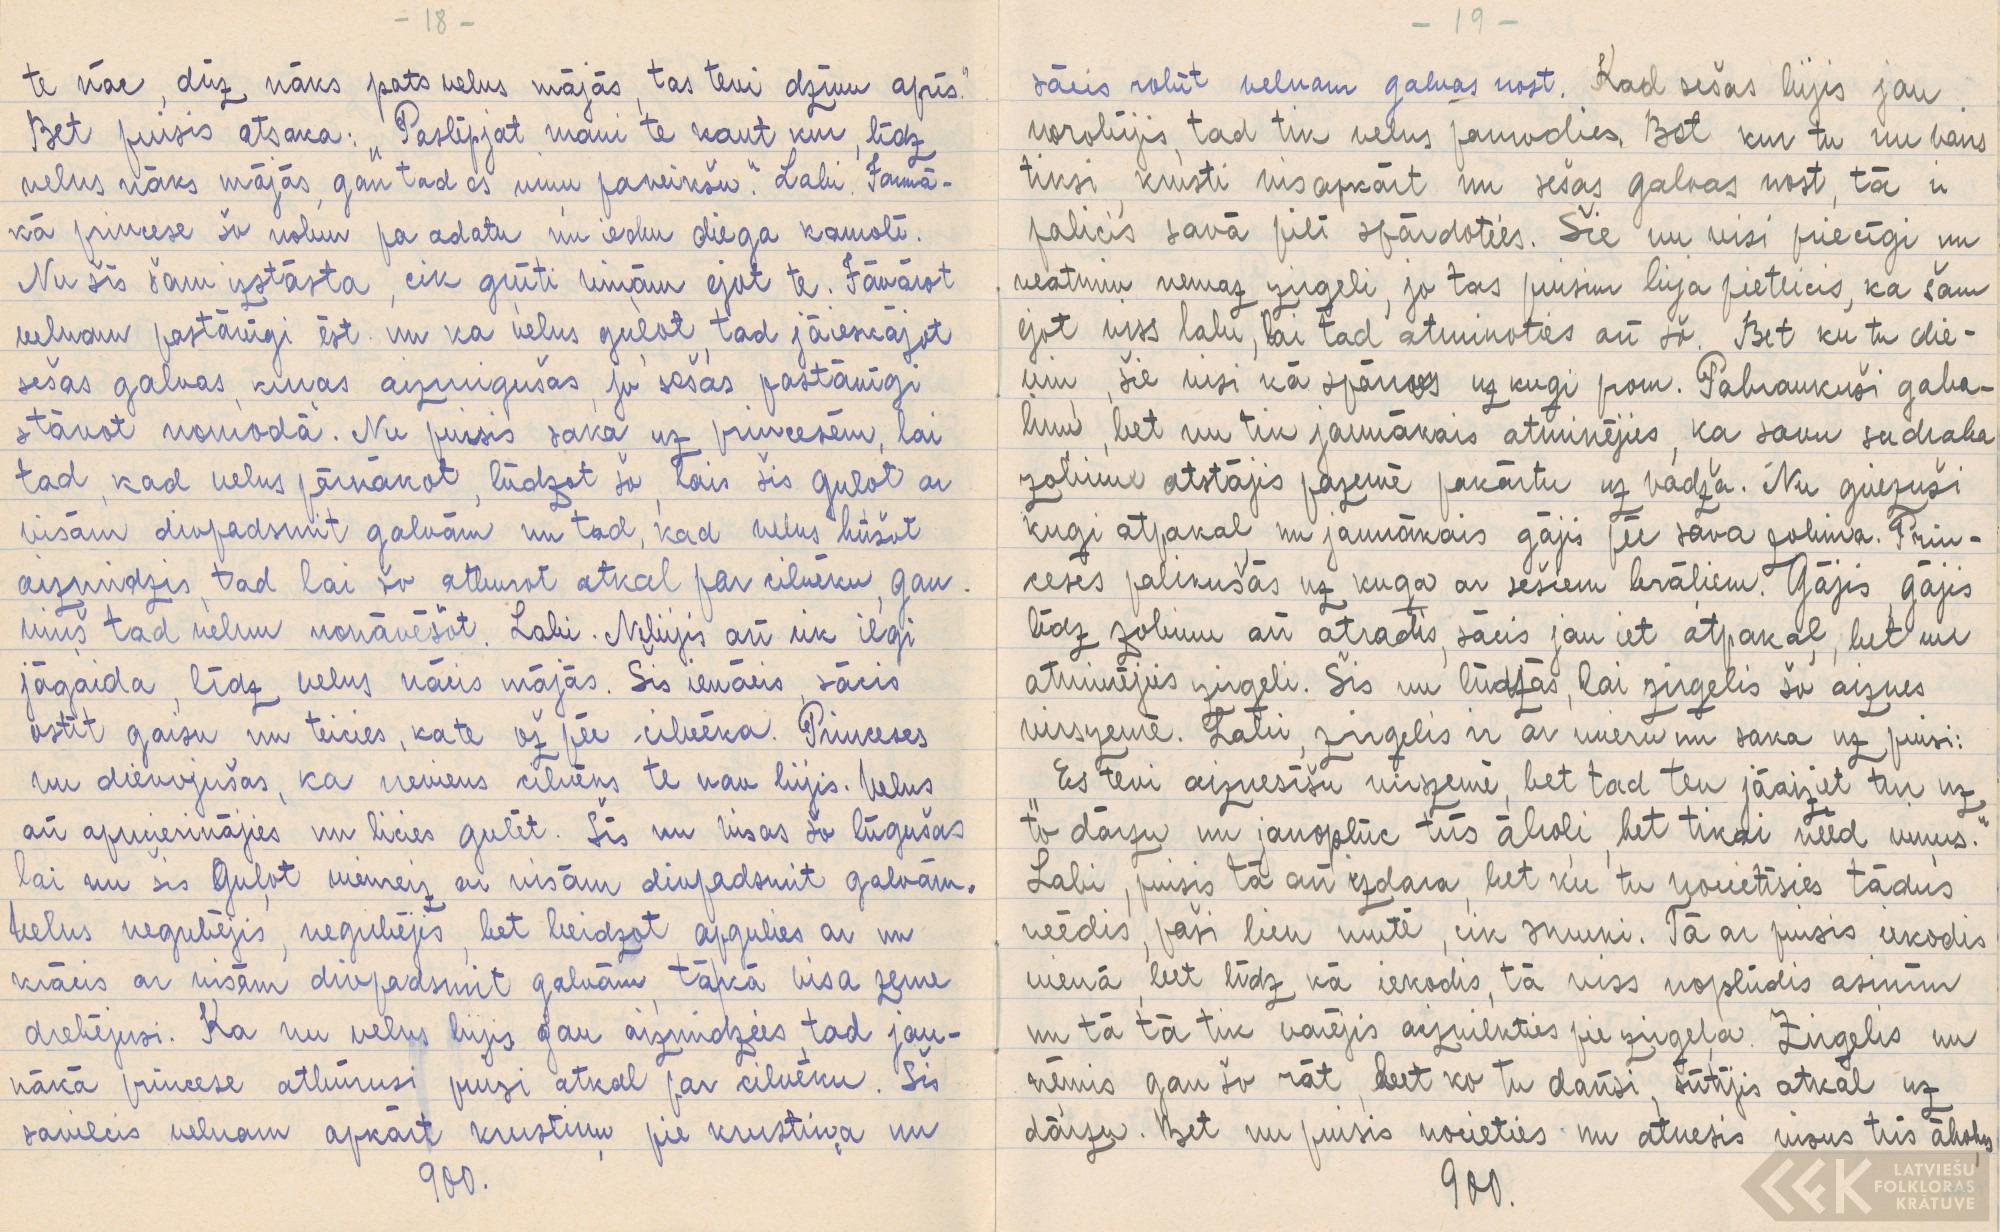 - 18 -
te nāc, dīz nāks pats velns mājās, tas tevi dzīvu aprīs."
Bet puisis atsaka: „Paslēpjat mani te kaut kur, līdz
velns nāks mājās, gan tad es viņu paveikšu." Labi. Jaunā-
kā princese šo nobur pa adatu un iedur diega kamolī.
Nu šīs šam izstāsta, cik grūti viņām ejot te. Jāvārot
velnam pastāvīgi ēst un ka velns guļot, tad jāieskājot
sešas galvas, kuŗas aizmigušas, jo sešas pastāvīgi
stāvot nomodā. Nu puisis saka uz princesēm, lai
tad, kad velns pārnākot, lūdzot šo, lais šis guļot ar
visām divpadsmit galvām un tad, kad velns būšot
aizmidzis, tad lai šo atburot atkal par cilvēku, gan
viņš tad velnu nonāvēšot. Labi. Nebijis arī cik ilgi
jāgaida, līdz velns nācis mājās. Šis ienācis, sācis
ostīt gaisu un teicies, ka te ož pēc cilvēka. Princeses
nu dievojušas, ka neviens cilvēks te nav bijis. Velns
arī apmierinājies un licies gulēt. Šīs nu visas šo lūgušas
lai nu šis guļot vienreiz ar visām divpadsmit galvām.
Velns negribējis, negribējis, bet beidzot apgulies ar un
krācis ar visām divpadsmit galvām, tāpkā visa zeme
drebējusi. Ka nu velns bijis jau aizmidzies, tad jau-
nākā princese atbūrusi puisi atkal par cilvēku. Šis
savilcis velnam apkārt krustiņu pie krustiņa un
900.
- 19 -
sācis robīt velnam galvas nost. Kad sešas bijis jau
norobījis, tad tik velns pamodies. Bet kur tu nu vairs
tiksi, krusti visapkārt un sešas galvas nost, tā ir
palicis savā pilī spārdoties. Šie nu visi priecīgi un
neatmin nemaz zirgeli, jo tas puisim bija pieteicis, ka šam
ejot viss labi, lai tad atminoties arī šo. Bet ku tu die-
viņ, šie visi kā spārnos uz kuģi prom. Pabraukuši gaba-
liņu, bet nu tik jaunākais atminējies, ka savu sudraba
zobinu atstājis pazemē pakārtu uz vadža. Nu griezuši
kuģi atpakaļ un jaunākais gājis pēc sava zobina. Prin-
ceses palikušas uz kuģa ar sešiem brāļiem. Gājis, gājis
līdz zobinu arī atradis, sācis jau iet atpakaļ, bet nu
atminējies zirgeli. Šis nu lūdzās, lai zirgelis šo aiznes
virszemē. Labi, zirgelis ir ar mieru un saka uz puisi:
„Es tevi aiznesīšu virszemē, bet tad tev jāaiziet tur uz
to dārzu un janoplūc trīs āboli, bet tikai neēd viņus."
Labi, puisis tā arī izdara, bet ku tu nocietīsies tādus
neēdis, paši lien mutē, cik smuki. Tā ar puisis iekodis
vienā, bet līdz kā iekodis, tā viss noplūdis asinīm
un tā tā tik varējis aizvilkties pie zirgeļa. Zirgelis nu
ņēmis gan šo rāt, bet ko tu darīsi, sūtījis atkal uz
dārzu. Bet nu puisis nocieties un atnesis visus trīs ābolus
900.
LATVIEŠU
FOLKLORAS
KRĀTUVE